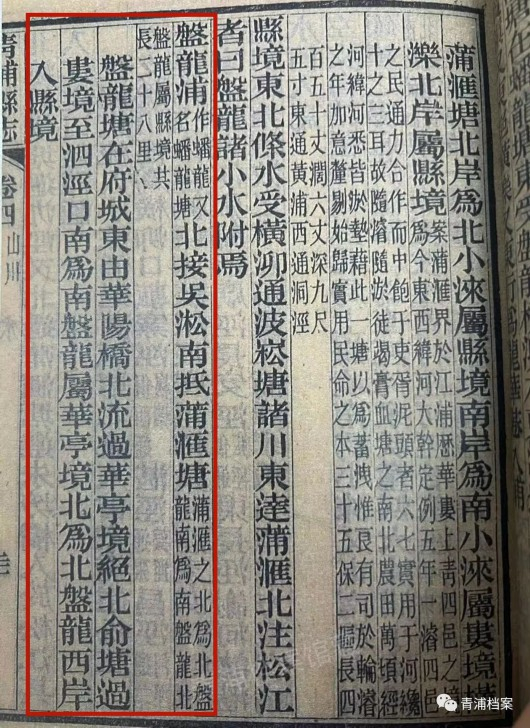 蒲滙塘北岸爲北小淶屬縣境南岸爲南小淶屬婁境
濼北岸屬縣境
案蒲滙界於江浦歷華婁上青四邑之
爲今東西緯河大幹定例五年一濬四邑
之民通力合作而中飽于吏胥泥頭者六七實用于河纔
十之三耳故隨濬隨淤徒竭膏血塘之南北農田萬頃經
河緯河悉皆淤墊藉此一塘以爲蓄洩惟良有司於輪濬
之年加意釐剔始歸實用民命之本三十五保二區長四
百五十丈濶六丈深九尺
五寸東通黃浦西通洞涇
縣境東北條水受橫泖通波崧塘諸川東達蒲滙北注松江
者曰盤龍諸小水附焉
盤龍浦
作蟠龍又
名蟠龍塘
北接吳淞南抵蒲滙塘
蒲滙之北爲北盤
龍南爲南盤龍北
盤龍屬縣境共
長二十八里
盤龍塘在府城東由華陽橋北流過華亭境絕北俞塘過
婁境至泗涇口南爲南盤龍屬華亭境北爲北盤龍西岸
入縣境
青浦縣志
卷四
山川
青浦档案